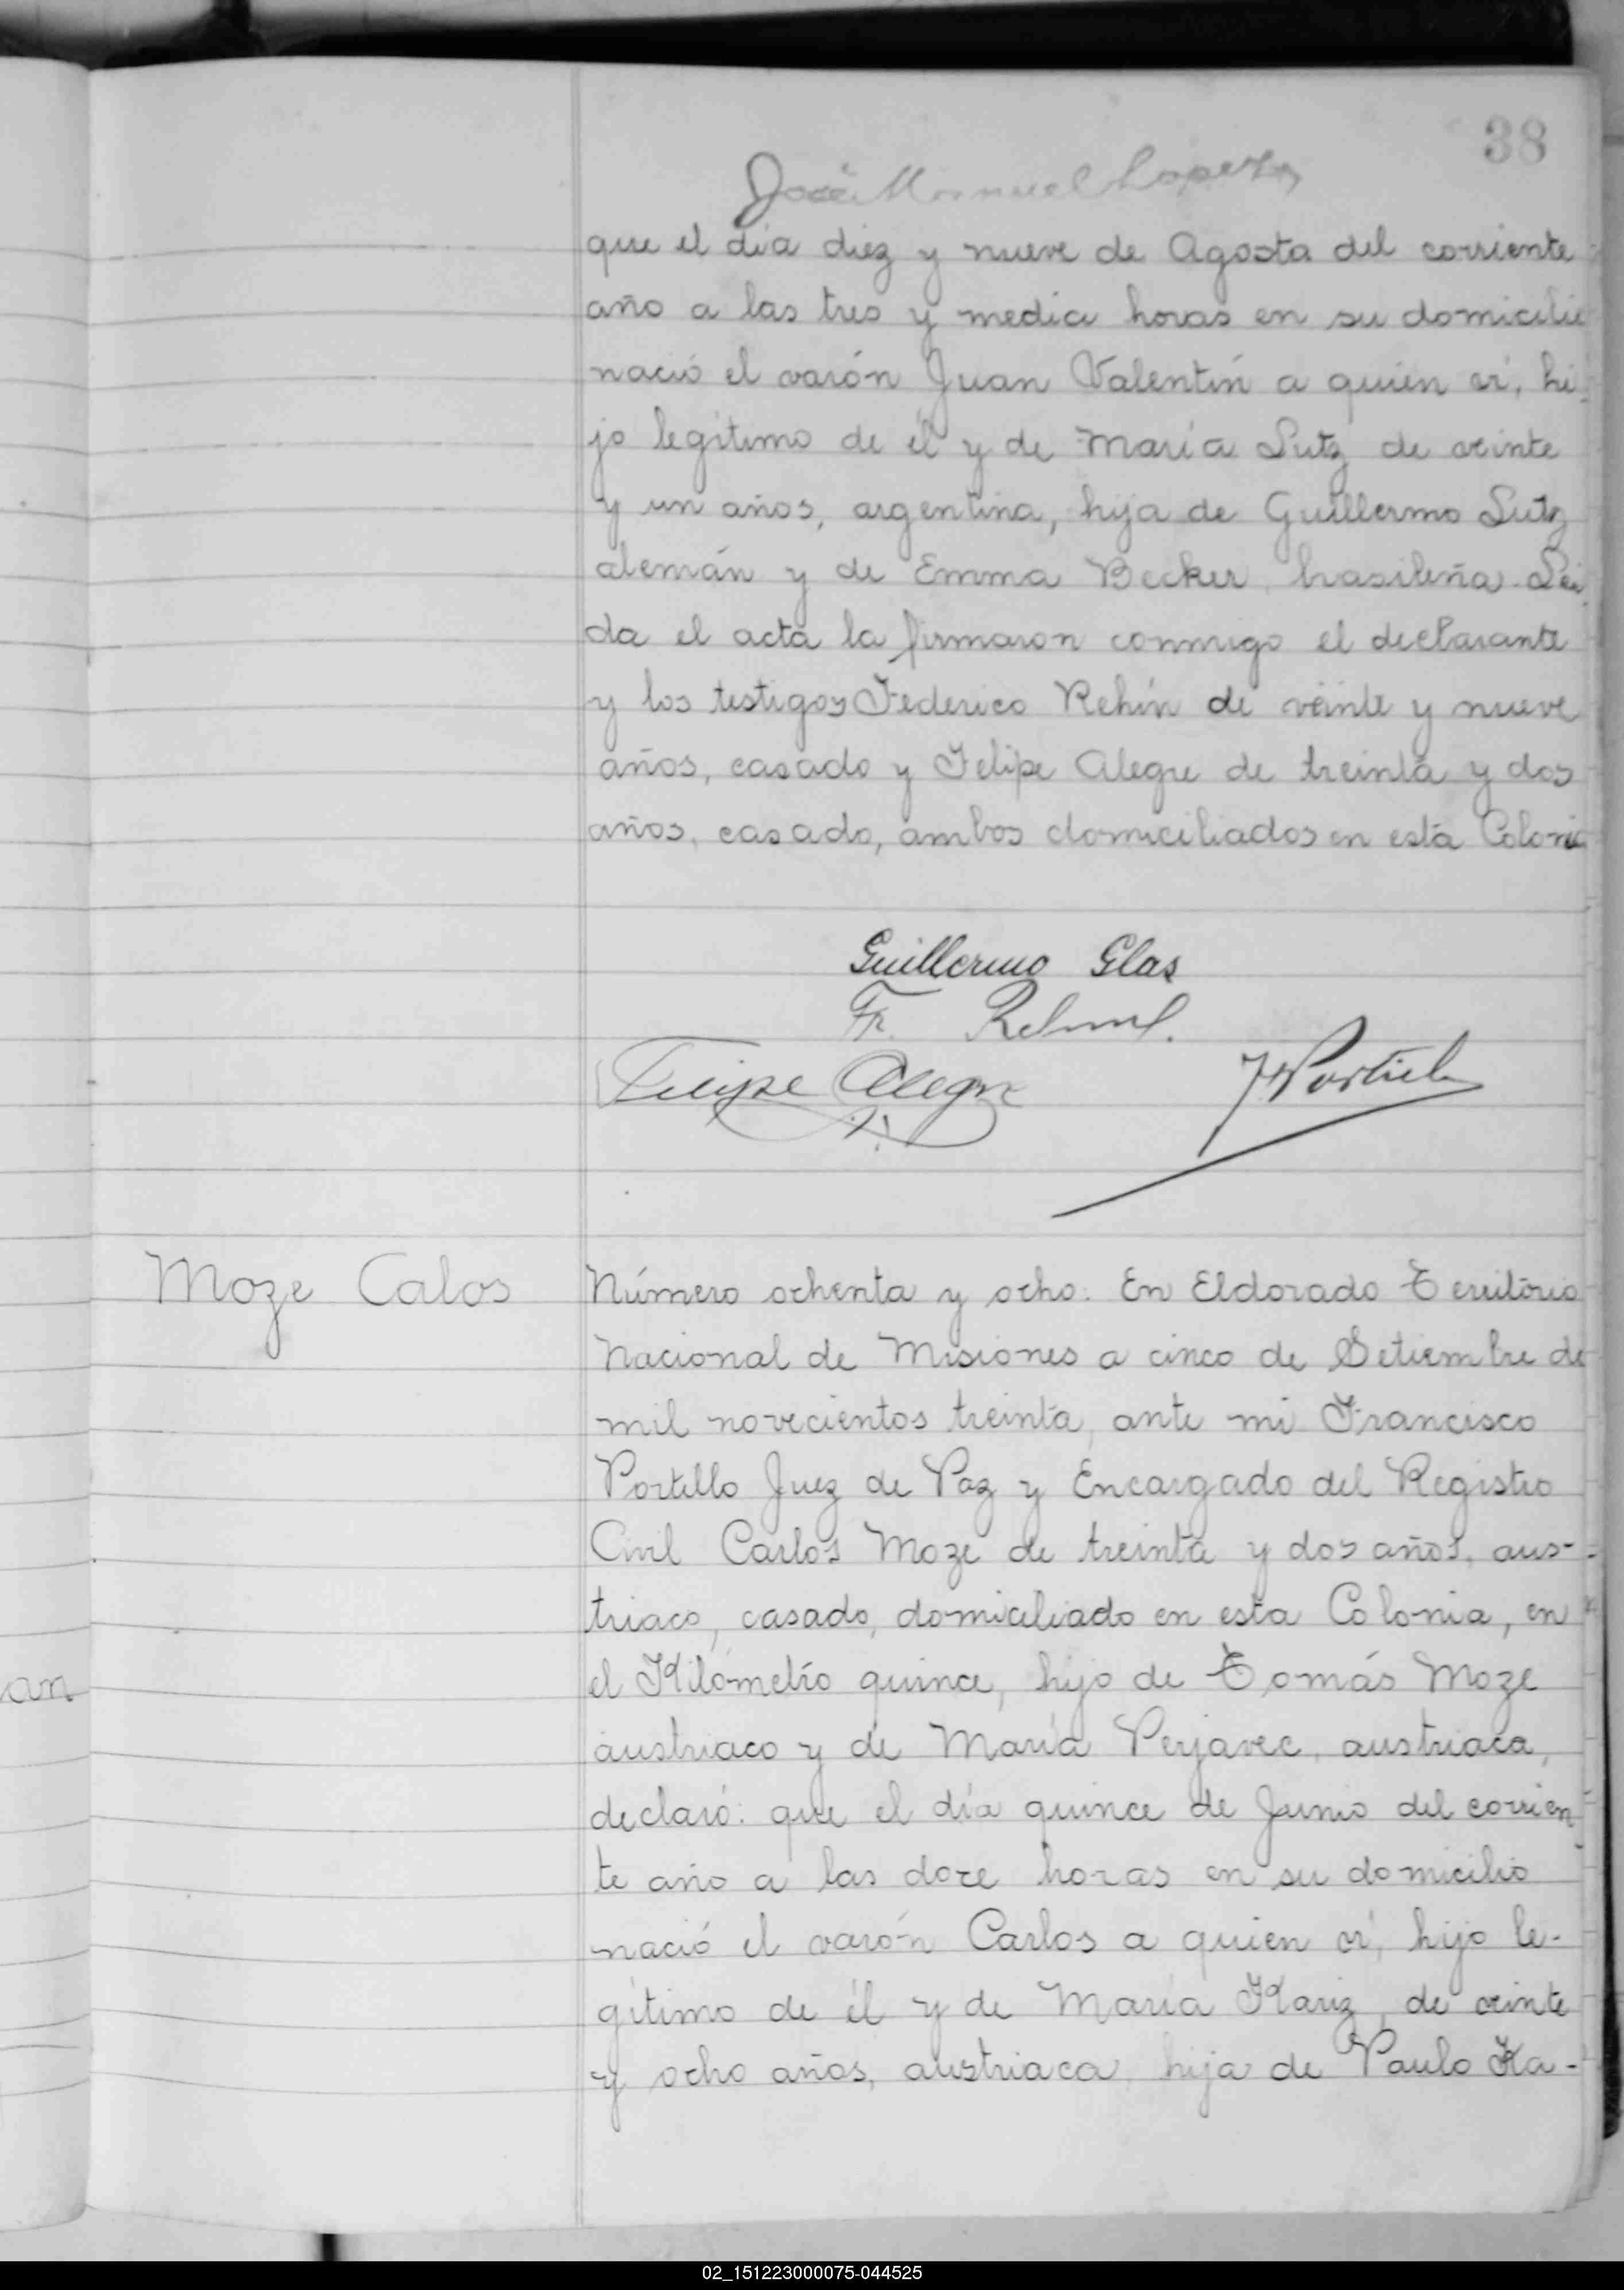 38
José Manuel Lopez
que el día diez y nueve de Agosto del corriente
año a las tres y media horas en su domicilio
nació el varón Juan Valentín a quien ví, hi-
jo legítimo de él y de María Lutz de veinte
y un años, argentina, hija de Guillermo Lutz
alemán y de Emma Becker, brasileña. Leí-
da el acta la firmaron conmigo el declarante
y los testigos Federico Rehín de veinte y nueve
años, casado y Felipe Alegre de treinta y dos
años, casado, ambos domiciliados en esta Colonia
Guillermo Glas
Fr.
Felipe Alegre
Moze Calos
Número ochenta y ocho. En Eldorado Territorio
Nacional de Misiones a cinco de Setiembre de
mil novecientos treinta, ante mi Francisco
Portillo Juez de Paz y Encargado del Registro
Civil Carlos Moze de treinta y dos años, aus-
triaco, casado, domiciliado en esta Colonia, en
el Kilómetro quince, hijo de Tomás Moze
an
austriaco y de María Perjavec, austriaca,
declaró: que el día quince de Junio del corrien-
te año a las doce horas en su domicilio
nació el varón Carlos a quien ví, hijo le-
gítimo de él y de María Kariz, de veinte
y ocho años, austriaca, hija de Paulo Ka-
02_151223000075-044525